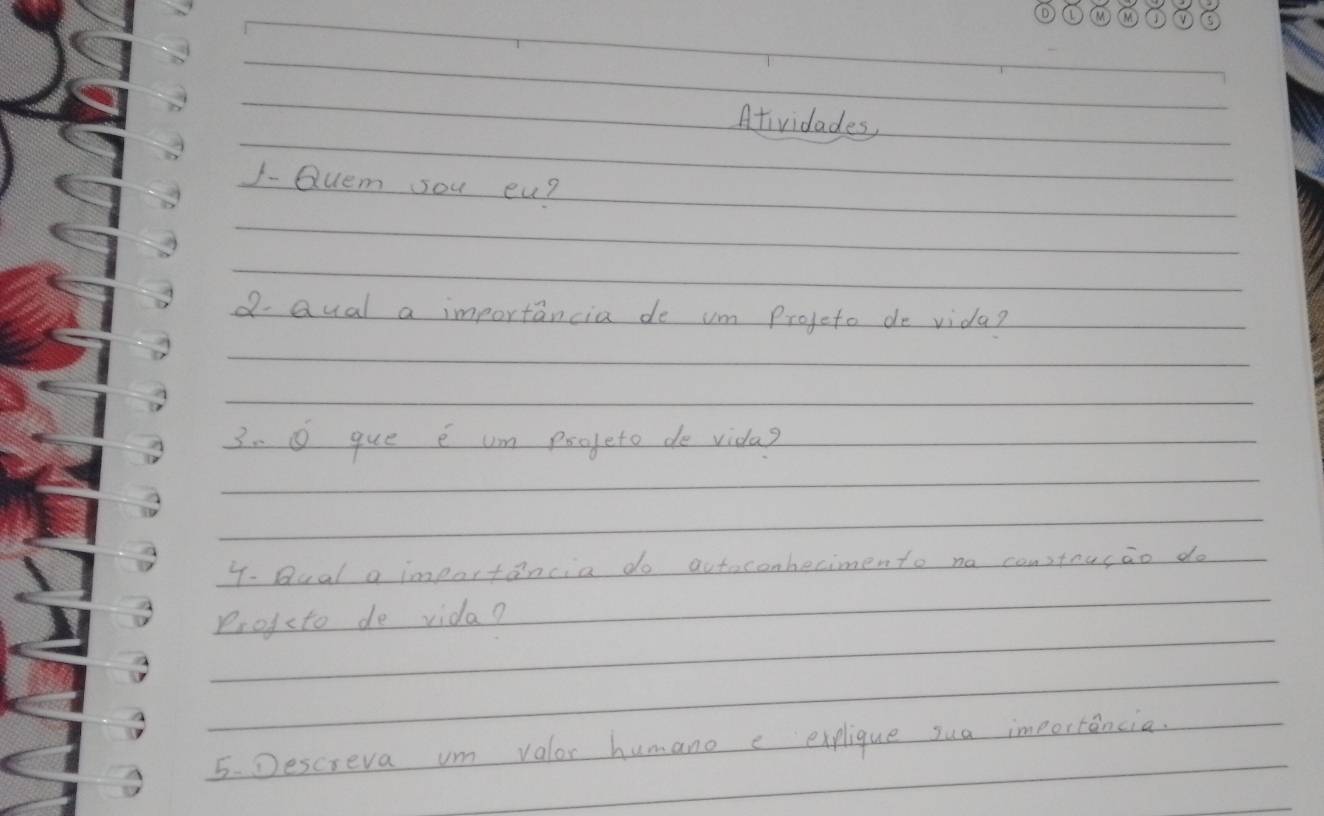 D L M M J V S
Atividades
1- Quem sou eu?
2- Qual a importância de um Projeto de vida?
3- O que é um projeto de vida?
4- Qual a importância do autoconhecimento na construção do
Projeto de vida?
5- Descreva um valor humano e explique sua importância.